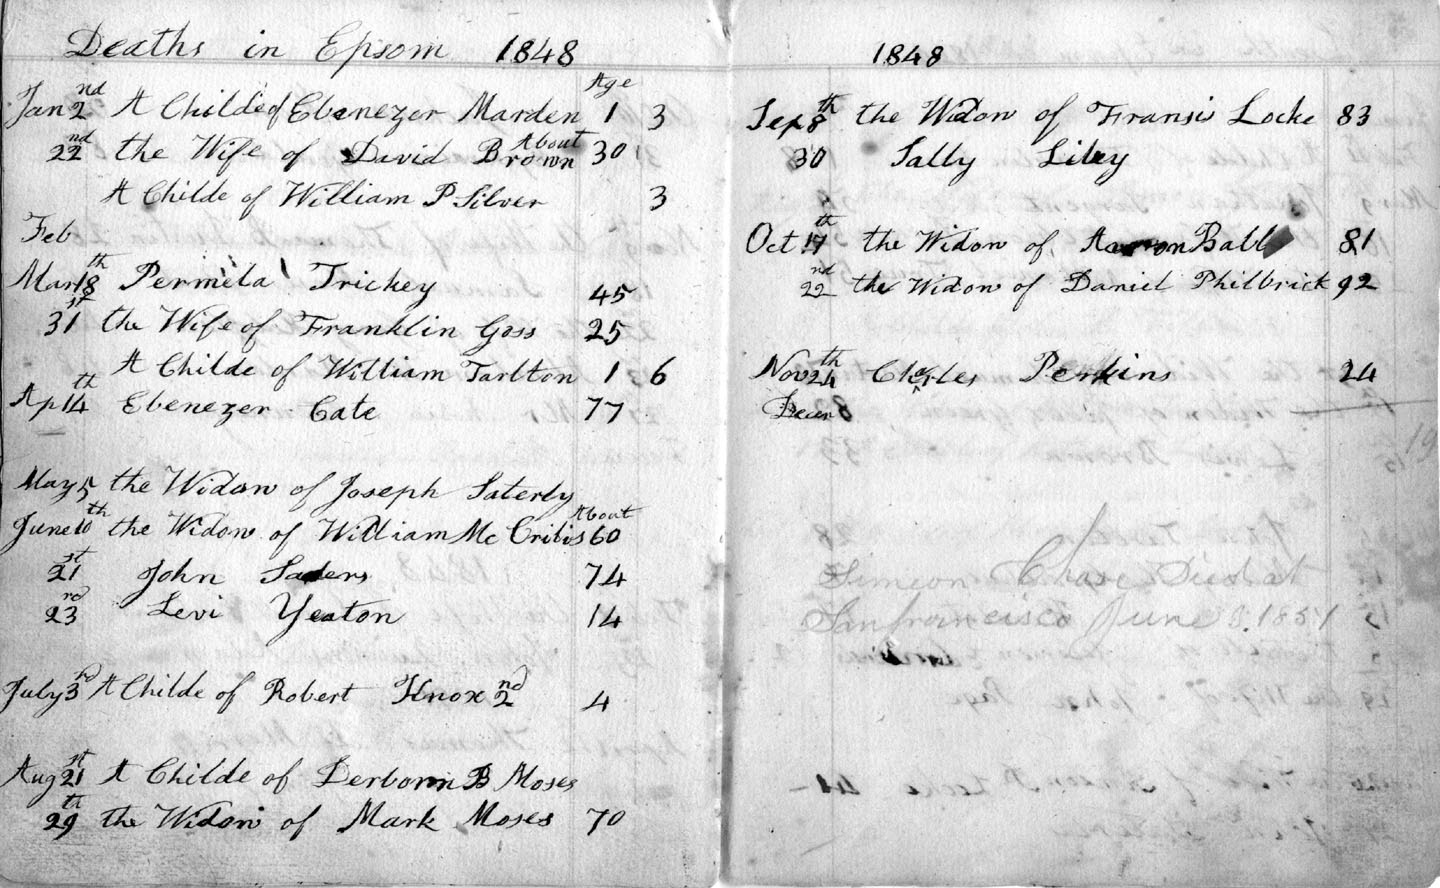 Deaths in Epsom 1848
Age
Jan 2nd A Childe of Ebenezer Marden 1 3
22nd the Wife of David Brown About 30
A Childe of William P Silver 3
Feb
Mar 18th Permela Trickey 45
31st the Wife of Franklin Goss 25
A Childe of William Tarlton 1 6
Ap 14th Ebenezer Cate 77
May 5 the Widow of Joseph Saterly
June 10th the Widow of William Mc Crilis About 60
21st John Saders 74
23rd Levi Yeaton 14
July 3rd A Childe of Robert Knox 2nd 4
Aug 21st A Childe of Derborn B Moses
29th the Widow of Mark Moses 70
1848
Sep 8th the Widow of Fransis Locke 83
30 Sally Liley
Oct 17th the Widow of Aaron Babb 81
22nd the Widow of Daniel Philbrick 92
Nov 24th Charles Perkins 24
Decem
Simeon Chase Died at
Sanfrancisco June 8. 1851